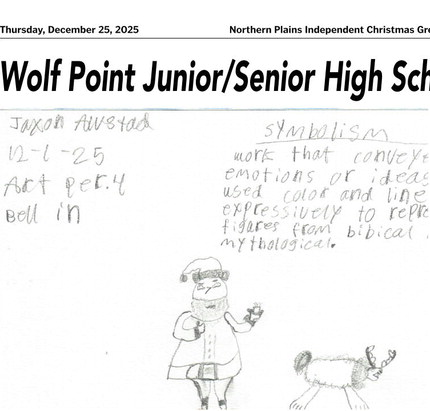 Thursday, December 25, 2025
Northern Plains Independent Christmas Gre
Wolf Point Junior/Senior High Sch
Jaxon
12-1-25
Art per.4
Bell in
Symbolism
work that conveye
emotions or ideas
used color and line
expressively to repre
figures from bibical
mythological.